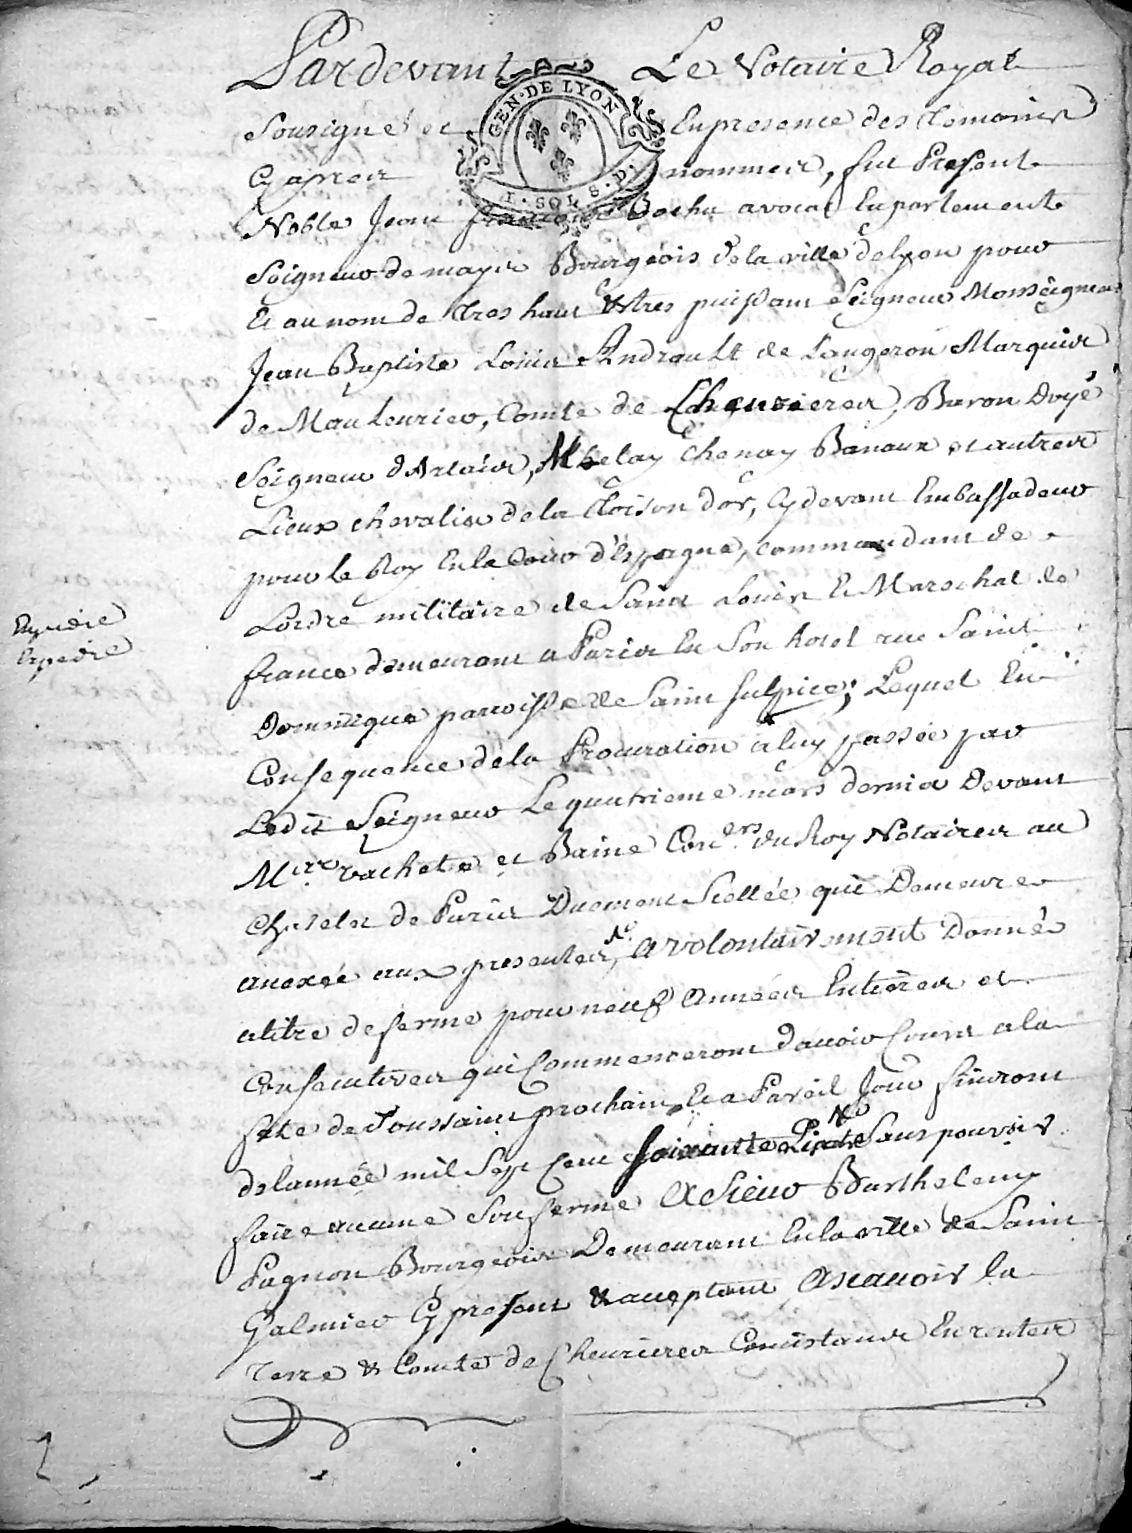 Pardevant Le Notaire Royal
GEN. DE LYON
I. SOL 8. D.
Sousigné et En presence des Temoins
Cy aprez nommez, fut Present
Noble Jean francois Bochu avocat En parlement
Seigneur de mayre Bourgeois de la ville de lyon pour
Et au nom de Tres haut & tres puissant Seigneur Monseigneur
Jean Baptiste Louis Andrault de Langeron Marquis
de Maulevrier, Comte de Chevrieres, Baron Doyé
Seigneur d'Artaix, Chenay Banaux et autres
Lieux chevalier de la Toison d'or, Cy devant Embassadeur
pour le Roy En la Cour d'Espagne, commandant de
Lordre militaire de Saint Louis Et Marechal de
france demeurant a Paris En Son hotel rue Saint
Dominique paroisse de Saint Sulpice; Lequel En
Consequence de la Procuration a luy passée par
Ledit Seigneur Le quatrieme mars dernier Devant
Mes. vachete et Baine Coners. du Roy Notaires au
Chatelet de Paris Duement Scellée qui Demeure
Expedie
Expedie
anexée aux presentes, A volontairement Donné
a titre de ferme pour neuf Années Entieres et
Consecutives qui Commenceront d'avoir Cours a la
fete de Toussaint prochain, Et a Pareil Jour finiront
de lannée mil Sept Cent Soixante Sans pouvoir
faire aucune Sousferme A Sieur Barthelemy
Pagnon Bourgeois Demeurant En la ville de Saint
Galmier Cy present & acceptant, Ascavoir la
Terre & Comté de Chevrieres Consistants En rentes